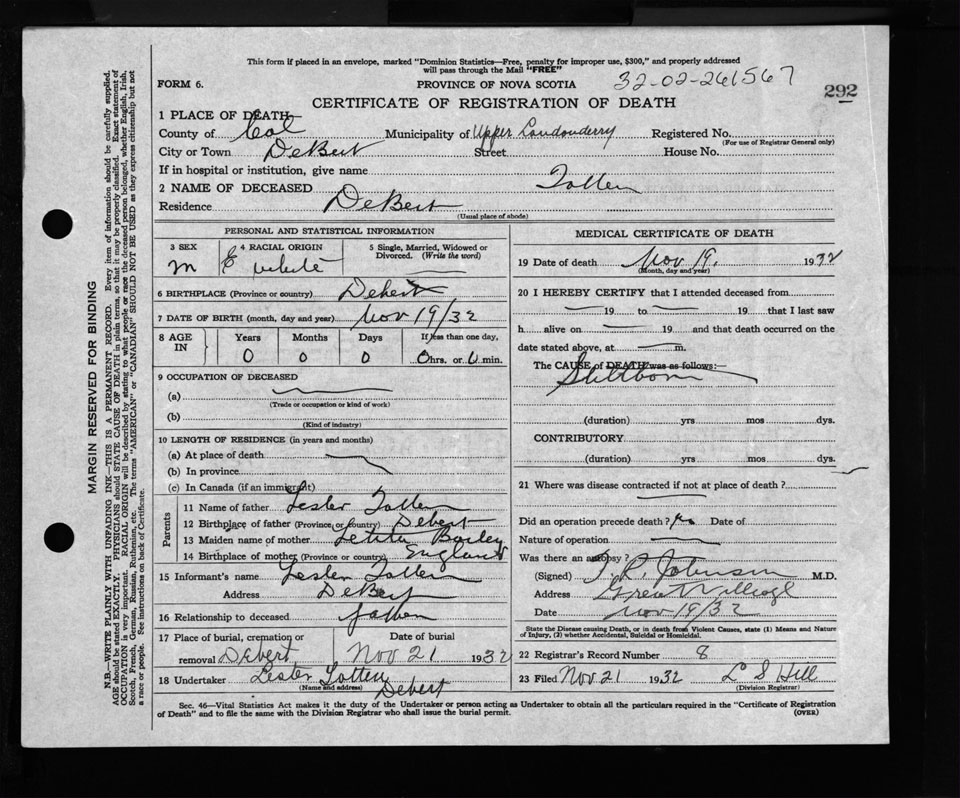 This form if placed in an envelope, marked "Dominion Statistics—Free, penalty for improper use, $300," and properly addressed
will pass through the Mail "FREE"
FORM 6. PROVINCE OF NOVA SCOTIA 32-02-261567 292
CERTIFICATE OF REGISTRATION OF DEATH
1 PLACE OF DEATH
County of Col Municipality of Upper Londonderry Registered No.
(For use of Registrar General only)
City or Town DeBert Street House No.
If in hospital or institution, give name
2 NAME OF DECEASED Totten
Residence DeBert
(Usual place of abode)
PERSONAL AND STATISTICAL INFORMATION
3 SEX 4 RACIAL ORIGIN 5 Single, Married, Widowed or
Divorced. (Write the word)
M E white
6 BIRTHPLACE (Province or country) Debert
7 DATE OF BIRTH (month, day and year) Nov 19/32
8 AGE IN Years Months Days If less than one day,
0 0 0 0 hrs. or 0 min.
9 OCCUPATION OF DECEASED
(a)
(Trade or occupation or kind of work)
(b)
(Kind of industry)
10 LENGTH OF RESIDENCE (in years and months)
(a) At place of death
(b) In province
(c) In Canada (if an immigrant)
Parents
11 Name of father Lester Totten
12 Birthplace of father (Province or country) Debert
13 Maiden name of mother Letitia Bailey
14 Birthplace of mother (Province or country) England
15 Informant's name Lester Totten
Address DeBert
16 Relationship to deceased father
17 Place of burial, cremation or Date of burial
removal Debert Nov 21 1932
18 Undertaker Lester Totten
(Name and address) Debert
MEDICAL CERTIFICATE OF DEATH
19 Date of death Nov 19. 1932
(Month, day and year)
20 I HEREBY CERTIFY that I attended deceased from
19 to 19 that I last saw
h alive on 19 and that death occurred on the
date stated above, at m.
The CAUSE of DEATH was as follows:—
Stillborn
(duration) yrs mos dys.
CONTRIBUTORY
(duration) yrs mos dys.
21 Where was disease contracted if not at place of death?
Did an operation precede death? no Date of
Nature of operation
Was there an autopsy?
(Signed) T. R. Johnson M.D.
Address Great Village
Date Nov 19/32
State the Disease causing Death, or in death from Violent Causes, state (1) Means and Nature
of Injury, (2) whether Accidental, Suicidal or Homicidal.
22 Registrar's Record Number 8
23 Filed Nov 21 1932 L S Hill
(Division Registrar)
Sec. 46—Vital Statistics Act makes it the duty of the Undertaker or person acting as Undertaker to obtain all the particulars required in the "Certificate of Registration
of Death" and to file the same with the Division Registrar who shall issue the burial permit. (OVER)
MARGIN RESERVED FOR BINDING
N.B.—WRITE PLAINLY WITH UNFADING INK—THIS IS A PERMANENT RECORD. Every item of information should be carefully supplied.
AGE should be stated EXACTLY. PHYSICIANS should STATE CAUSE OF DEATH in plain terms, so that it may be properly classified. Exact statement of
OCCUPATION is very important. RACIAL ORIGIN will be described by stating to what people or race the deceased person belonged, whether English, Irish,
Scotch, French, German, Russian, Ruthenian, etc. The terms "AMERICAN" or "CANADIAN" SHOULD NOT BE USED as they express citizenship but not
a race or people. See instructions on back of Certificate.